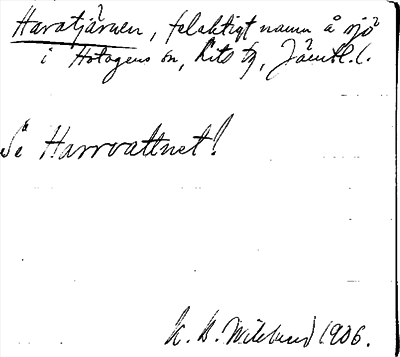 Haratjärnen, felaktigt namn å sjö
i Hotagens sn, Lits tg, Jämtl. l.
Se Harrvattnet!
K. B. Wiklund 1906.